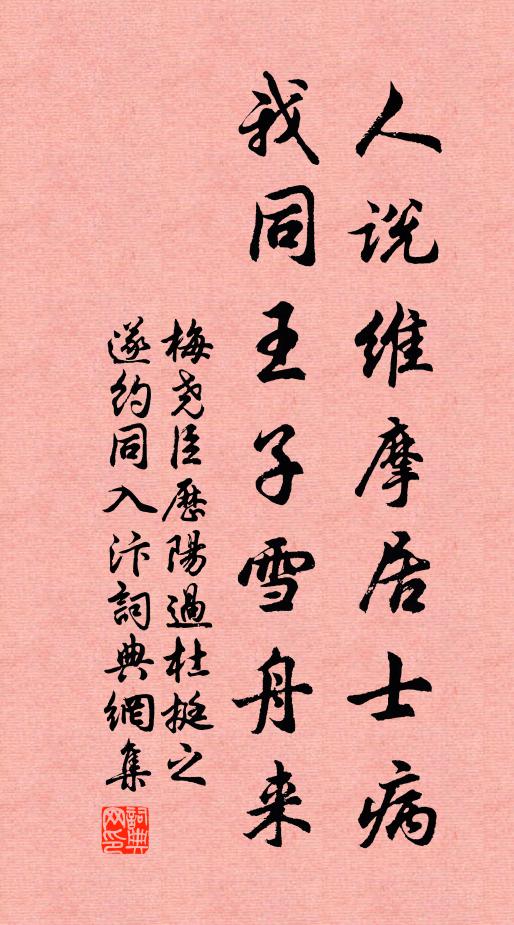 人说维摩居士病
我同王子雪舟来
梅尧臣歷陽過杜挺之
遂约同入汴詞典網集
詞典
网印